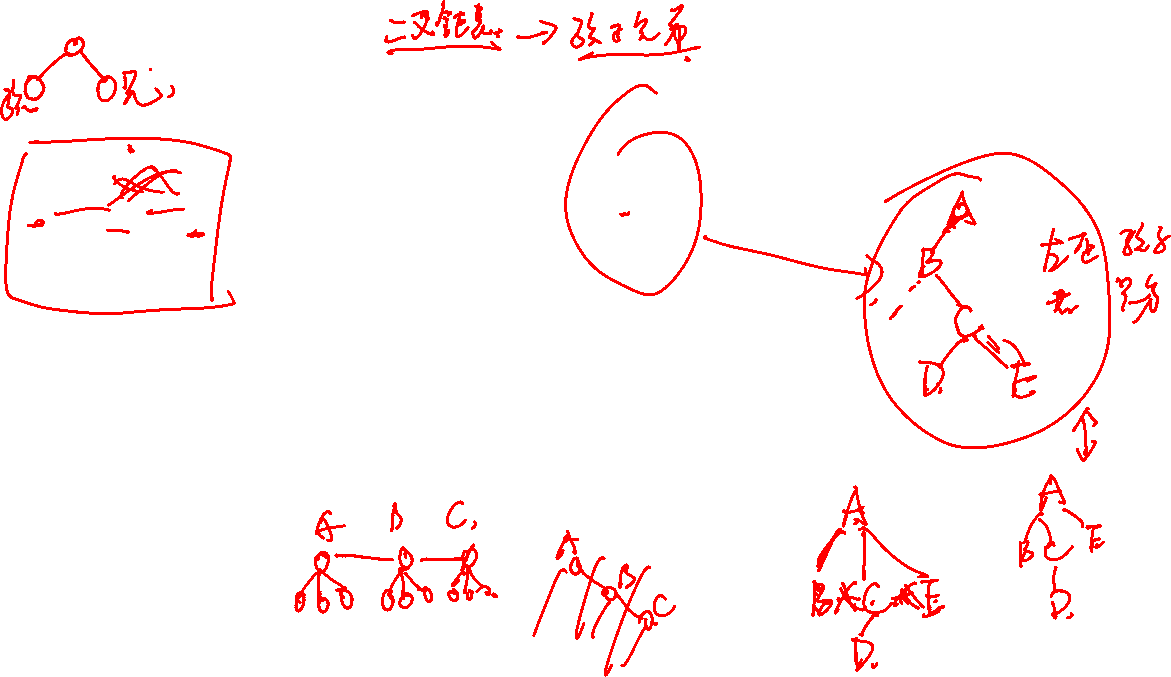 二叉链表 → 孩子兄弟
孩 兄
A
B 左 孩子
C 右 兄弟
D E
A B C
A
B
C
A
B C E
D
A
B C E
D